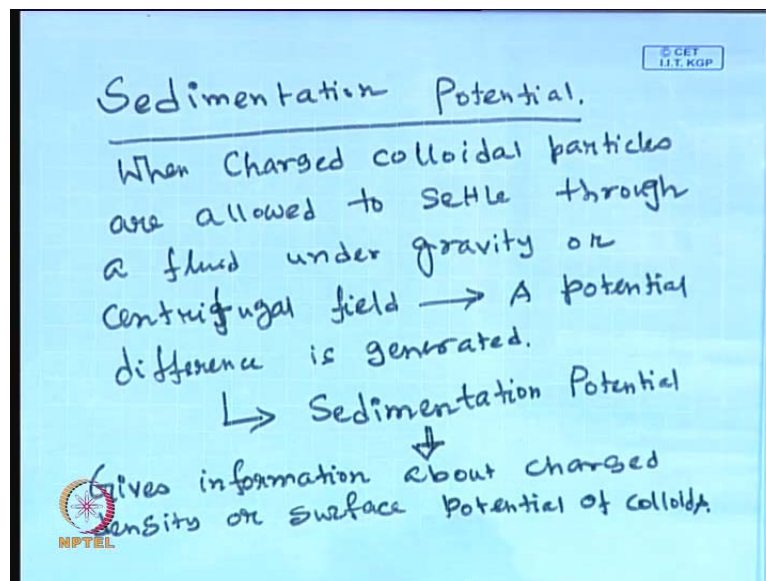 © CET
I.I.T. KGP
Sedimentation Potential.
When Charged colloidal particles
are allowed to settle through
a fluid under gravity or
centrifugal field → A potential
difference is generated.
↳ Sedimentation Potential
⇓
Gives information about charged
density or surface potential of colloids.
NPTEL